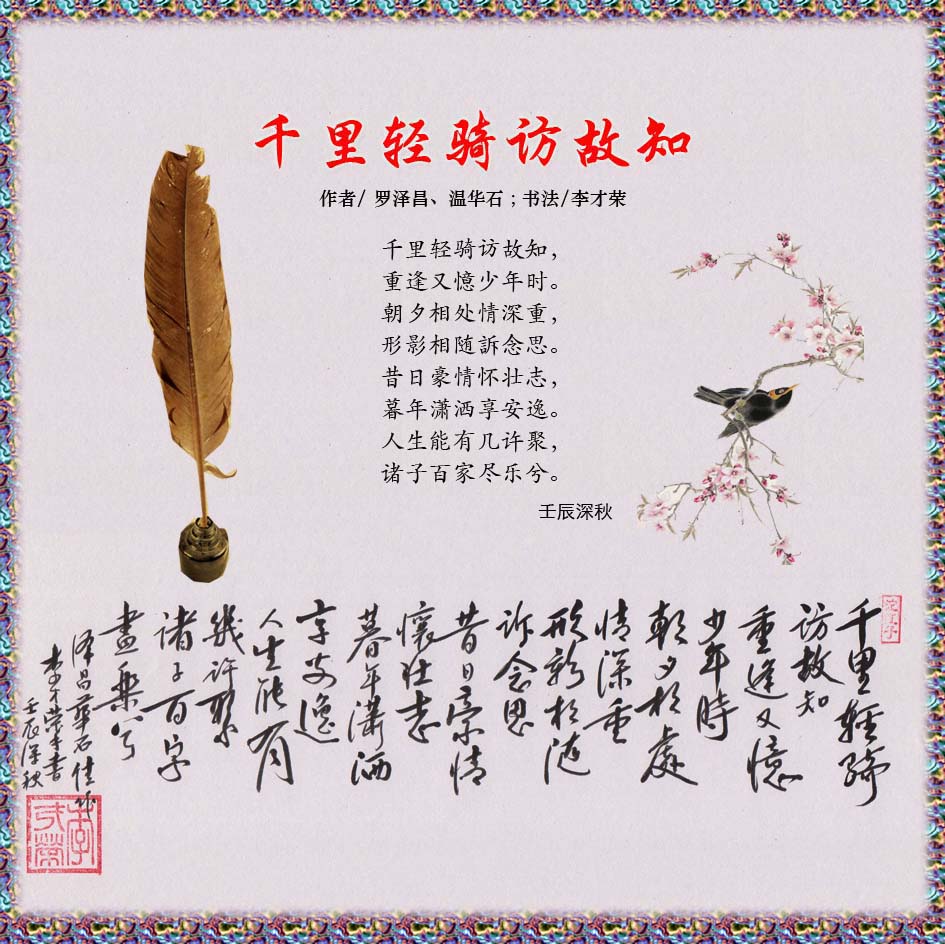 千里轻骑访故知
作者/ 罗泽昌、温华石；书法/李才荣
千里轻骑访故知，
重逢又憶少年时。
朝夕相处情深重，
形影相随訴念思。
昔日豪情怀壮志，
暮年潇洒享安逸。
人生能有几许聚，
诸子百家尽乐兮。
壬辰深秋
千里輕骑
訪故知
重逢又憶
少年時
朝夕相處
情深重
形影相随
訴念思
昔日豪情
懷壮志
暮年瀟洒
享安逸
人生能有
幾许聚
诸子百字
盡樂兮
泽昌華石佳作
李才荣书
壬辰深秋
李才榮